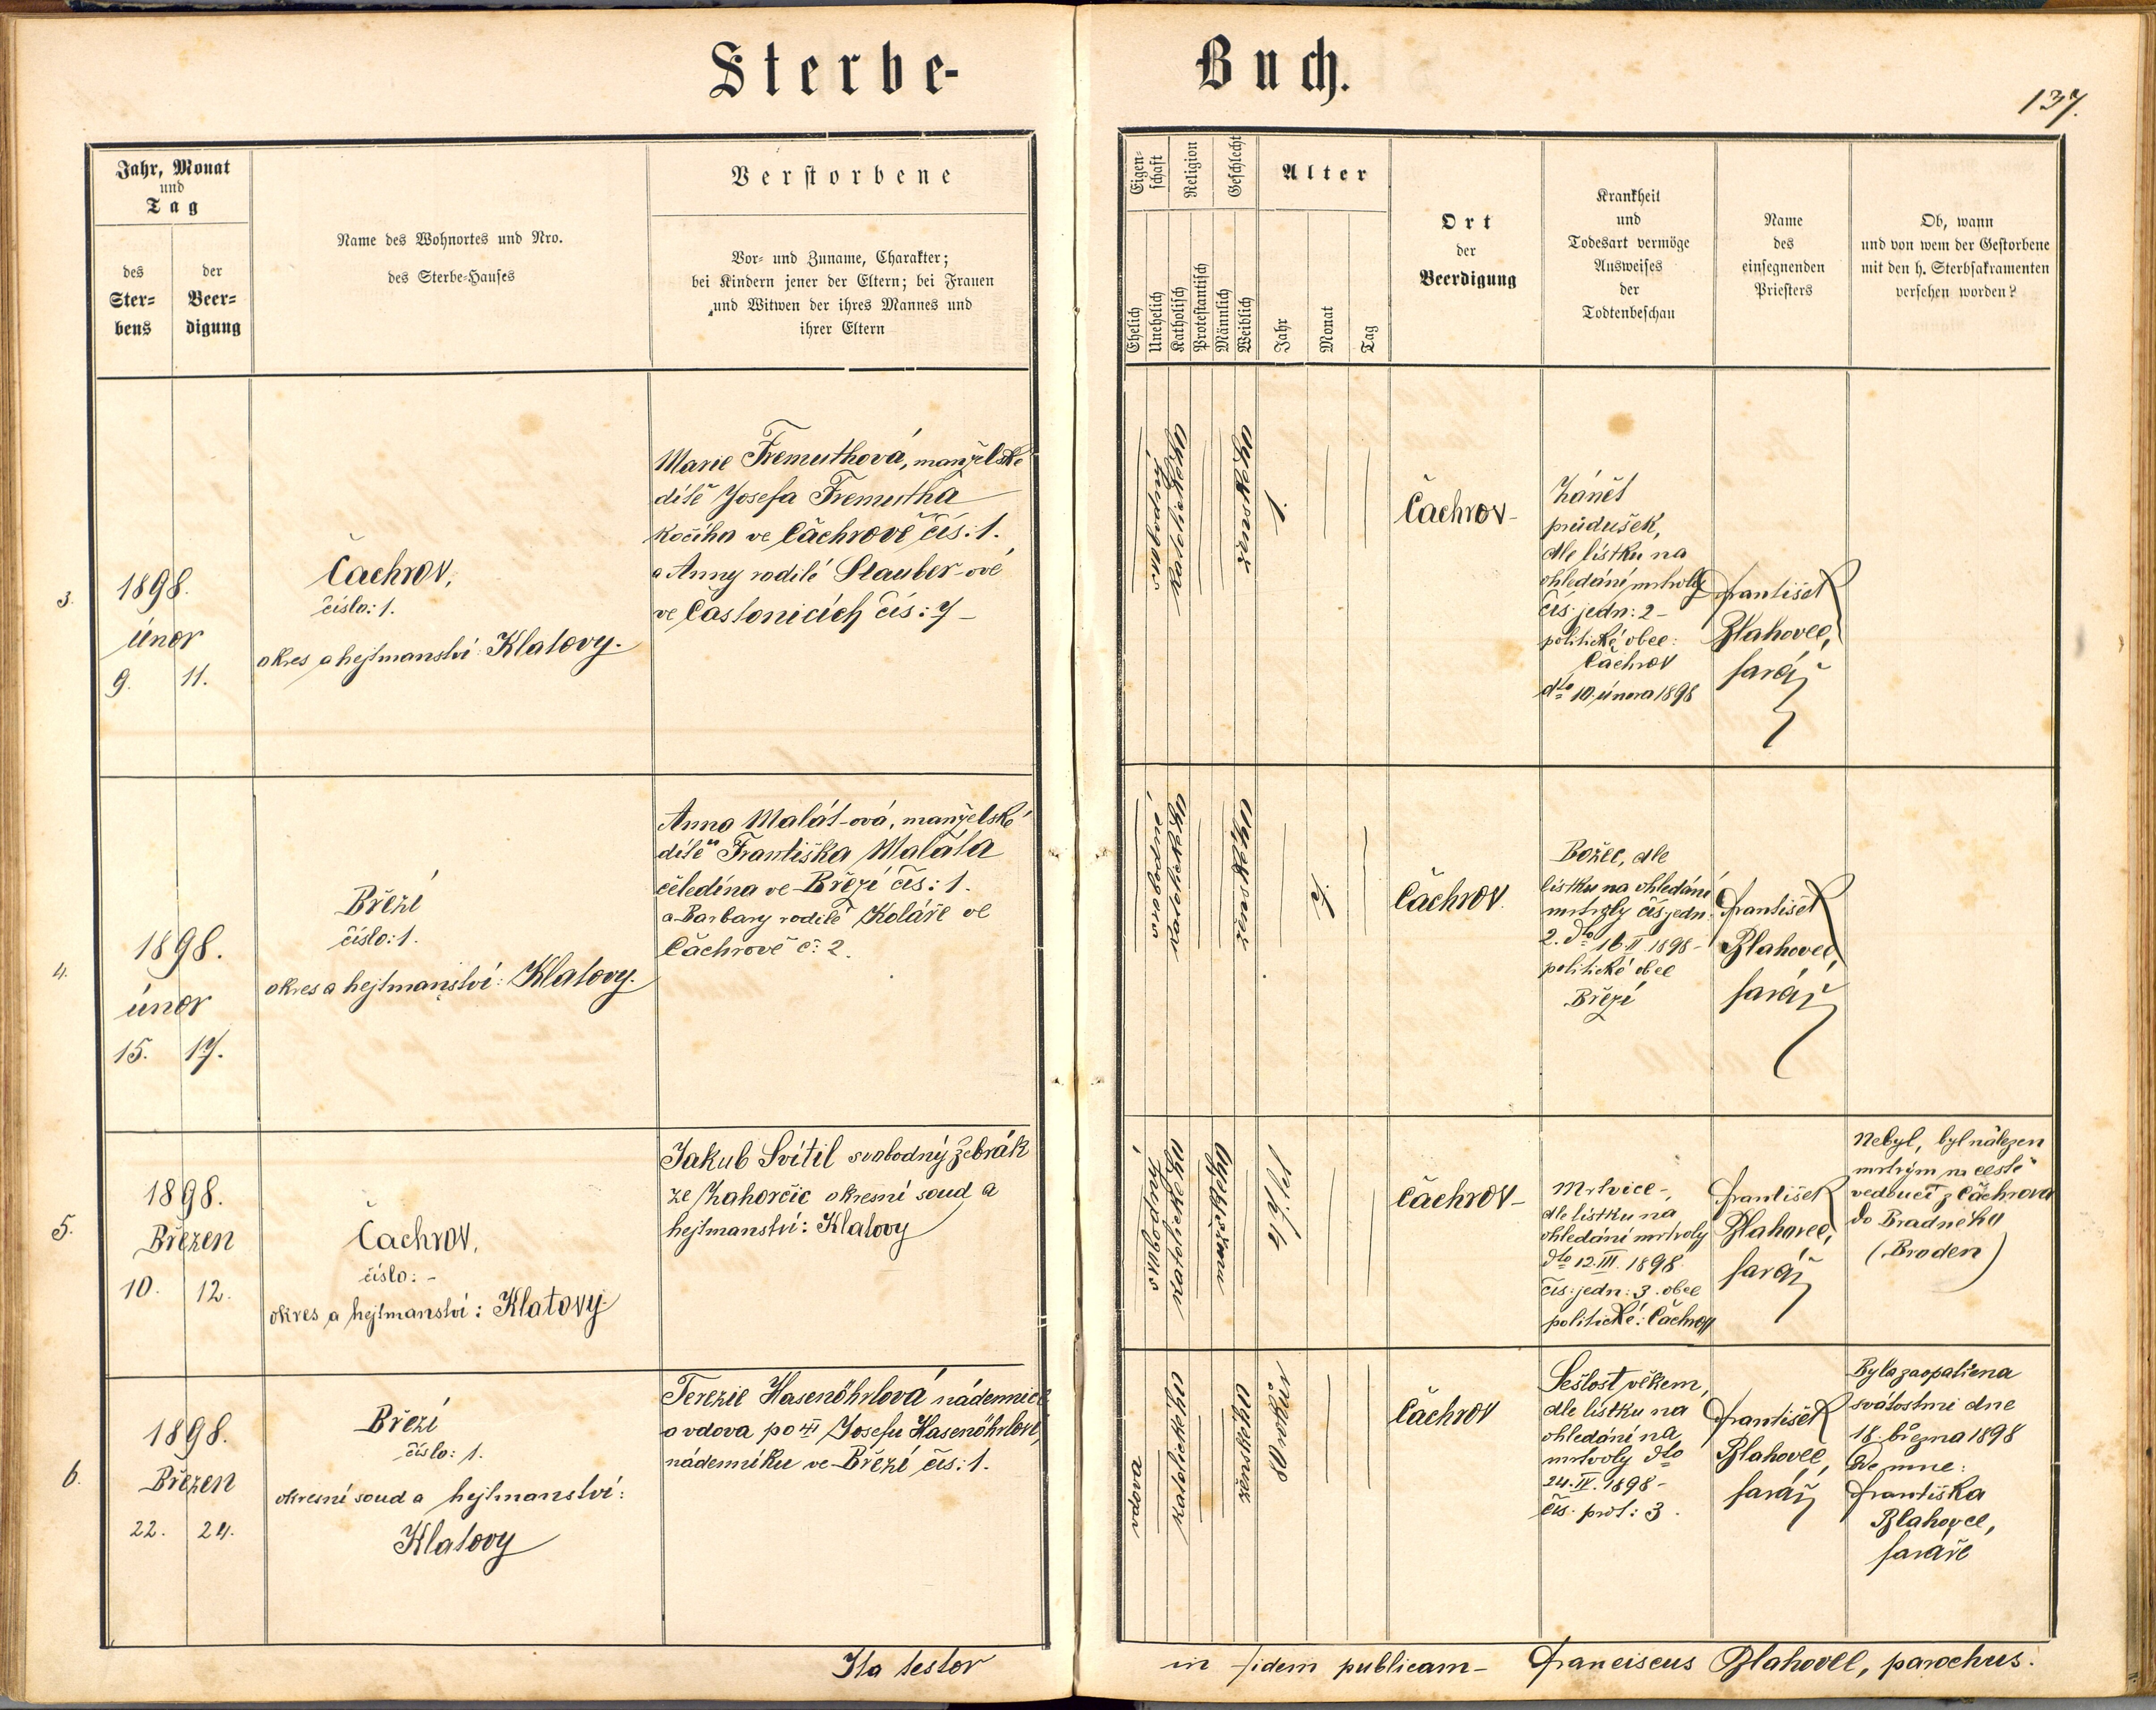 Sterbe-
Buch.
137.
Jahr, Monat
und
Tag
des
Ster=
bens
der
Beer=
digung
Name des Wohnortes und Nro.
des Sterbe-Hauses
Verstorbene
Vor- und Zuname, Charakter;
bei Kindern jener der Eltern; bei Frauen
und Witwen der ihres Mannes und
ihrer Eltern
Eigen-
schaft
Religion
Geschlecht
Alter
Ehelich
Unehelich
Katholisch
Protestantisch
Männlich
Weiblich
Jahr
Monat
Tag
Ort
der
Beerdigung
Krankheit
und
Todesart vermöge
Ausweises
der
Todtenbeschau
Name
des
einsegnenden
Priesters
Ob, wann
und von wem der Gestorbene
mit den h. Sterbsakramenten
versehen worden?
3.
1898.
únor
9. 11.
Čachrov,
číslo: 1.
okres a hejtmanství: Klatovy.
Marie Fremuthová, manželské
dítě Josefa Fremutha
kočího ve Čachrově čís: 1.
a Anny rodilé Stauber-ové
ve Častonicích čís: 7
svobodný
katolického
ženského
1
Čachrov
Zánět
průdušek,
dle lístku na
ohledání mrtvoly
čís: jedn: 2
politické obce:
Čachrov
dto 10. února 1898
František
Blahovec,
farář
4.
1898.
únor
15. 17.
Březí
číslo: 1.
okres a hejtmanství: Klatovy.
Anna Malát-ová, manželské
dítě Františka Maláta
čeledína ve Březí čís: 1.
a Barbary rodilé Koláře ve
Čachrově č: 2.
svobodná
katolického
ženského
Čachrov.
Božec, dle
lístku na ohledání
mrtvoly čís jedn.
2. dto 16.II.1898
politické obce
Březí
František
Blahovec,
farář
5.
1898.
Březen
10. 12.
Čachrov,
číslo: -
okres a hejtmanství: Klatovy
Jakub Svítil svobodný žebrák
ze Zahorčic okresní soud a
hejtmanství: Klatovy
svobodný
katolického
mužského
Čachrov
Mrtvice,
dle lístku na
ohledání mrtvoly
dto 12.III. 1898.
čís: jedn: 3. obce
politické: Čachrov
František
Blahovec,
farář
Nebyl, byl nalezen
mrtvým na cestě
vedoucí z Čachrova
do Bradného
(Braden)
6.
1898.
Březen
22. 24.
Březí
číslo: 1.
okresní soud a hejtmanství:
Klatovy
Terezie Hasenöhrlová nádennice
a vdova po Josefu Hasenöhrlovi,
nádenníku ve Březí čís: 1.
vdova
katolického
ženského
80 roků
Čachrov
Sešlost věkem,
dle lístku na
ohledání na
mrtvoly dto
24.IV.1898
čís. prot: 3.
František
Blahovec,
farář
Byla zaopatřena
svátostmi dne
18. března 1898
Ode mne:
Františka
Blahovce,
faráře
Ita testor
in fidem publicam Franciscus Blahovec, parochus.